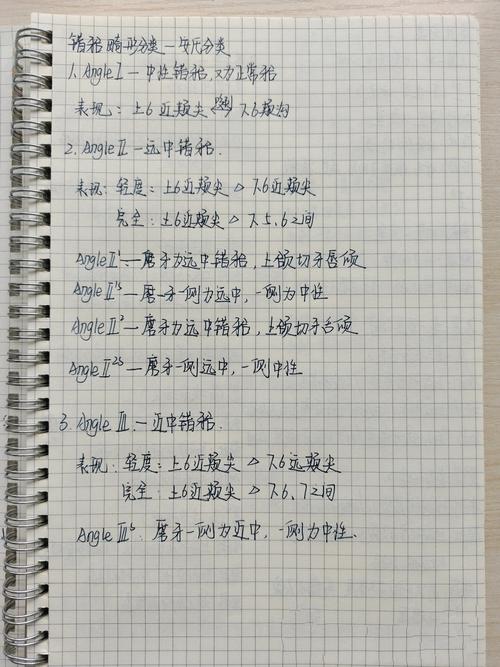 错𬌗畸形分类—安氏分类
1. Angle I — 中性错𬌗,又为正常𬌗
表现:上6近颊尖 下6颊沟
2. Angle II — 远中错𬌗.
表现:轻度:上6近颊尖 △ 下6近颊尖
完全:上6近颊尖 △ 下5.6之间
Angle II¹ — 磨牙为远中错𬌗,上颌切牙唇倾
Angle II¹ˢ — 磨牙一侧为远中,一侧为中性
Angle II² — 磨牙为远中错𬌗,上颌切牙舌倾
Angle II²ˢ — 磨牙一侧远中,一侧中性
3. Angle III — 近中错𬌗.
表现:轻度:上6近颊尖 △ 下6远颊尖
完全:上6近颊尖 △ 下6.7之间
Angle IIIˢ:磨牙一侧为近中,一侧为中性.